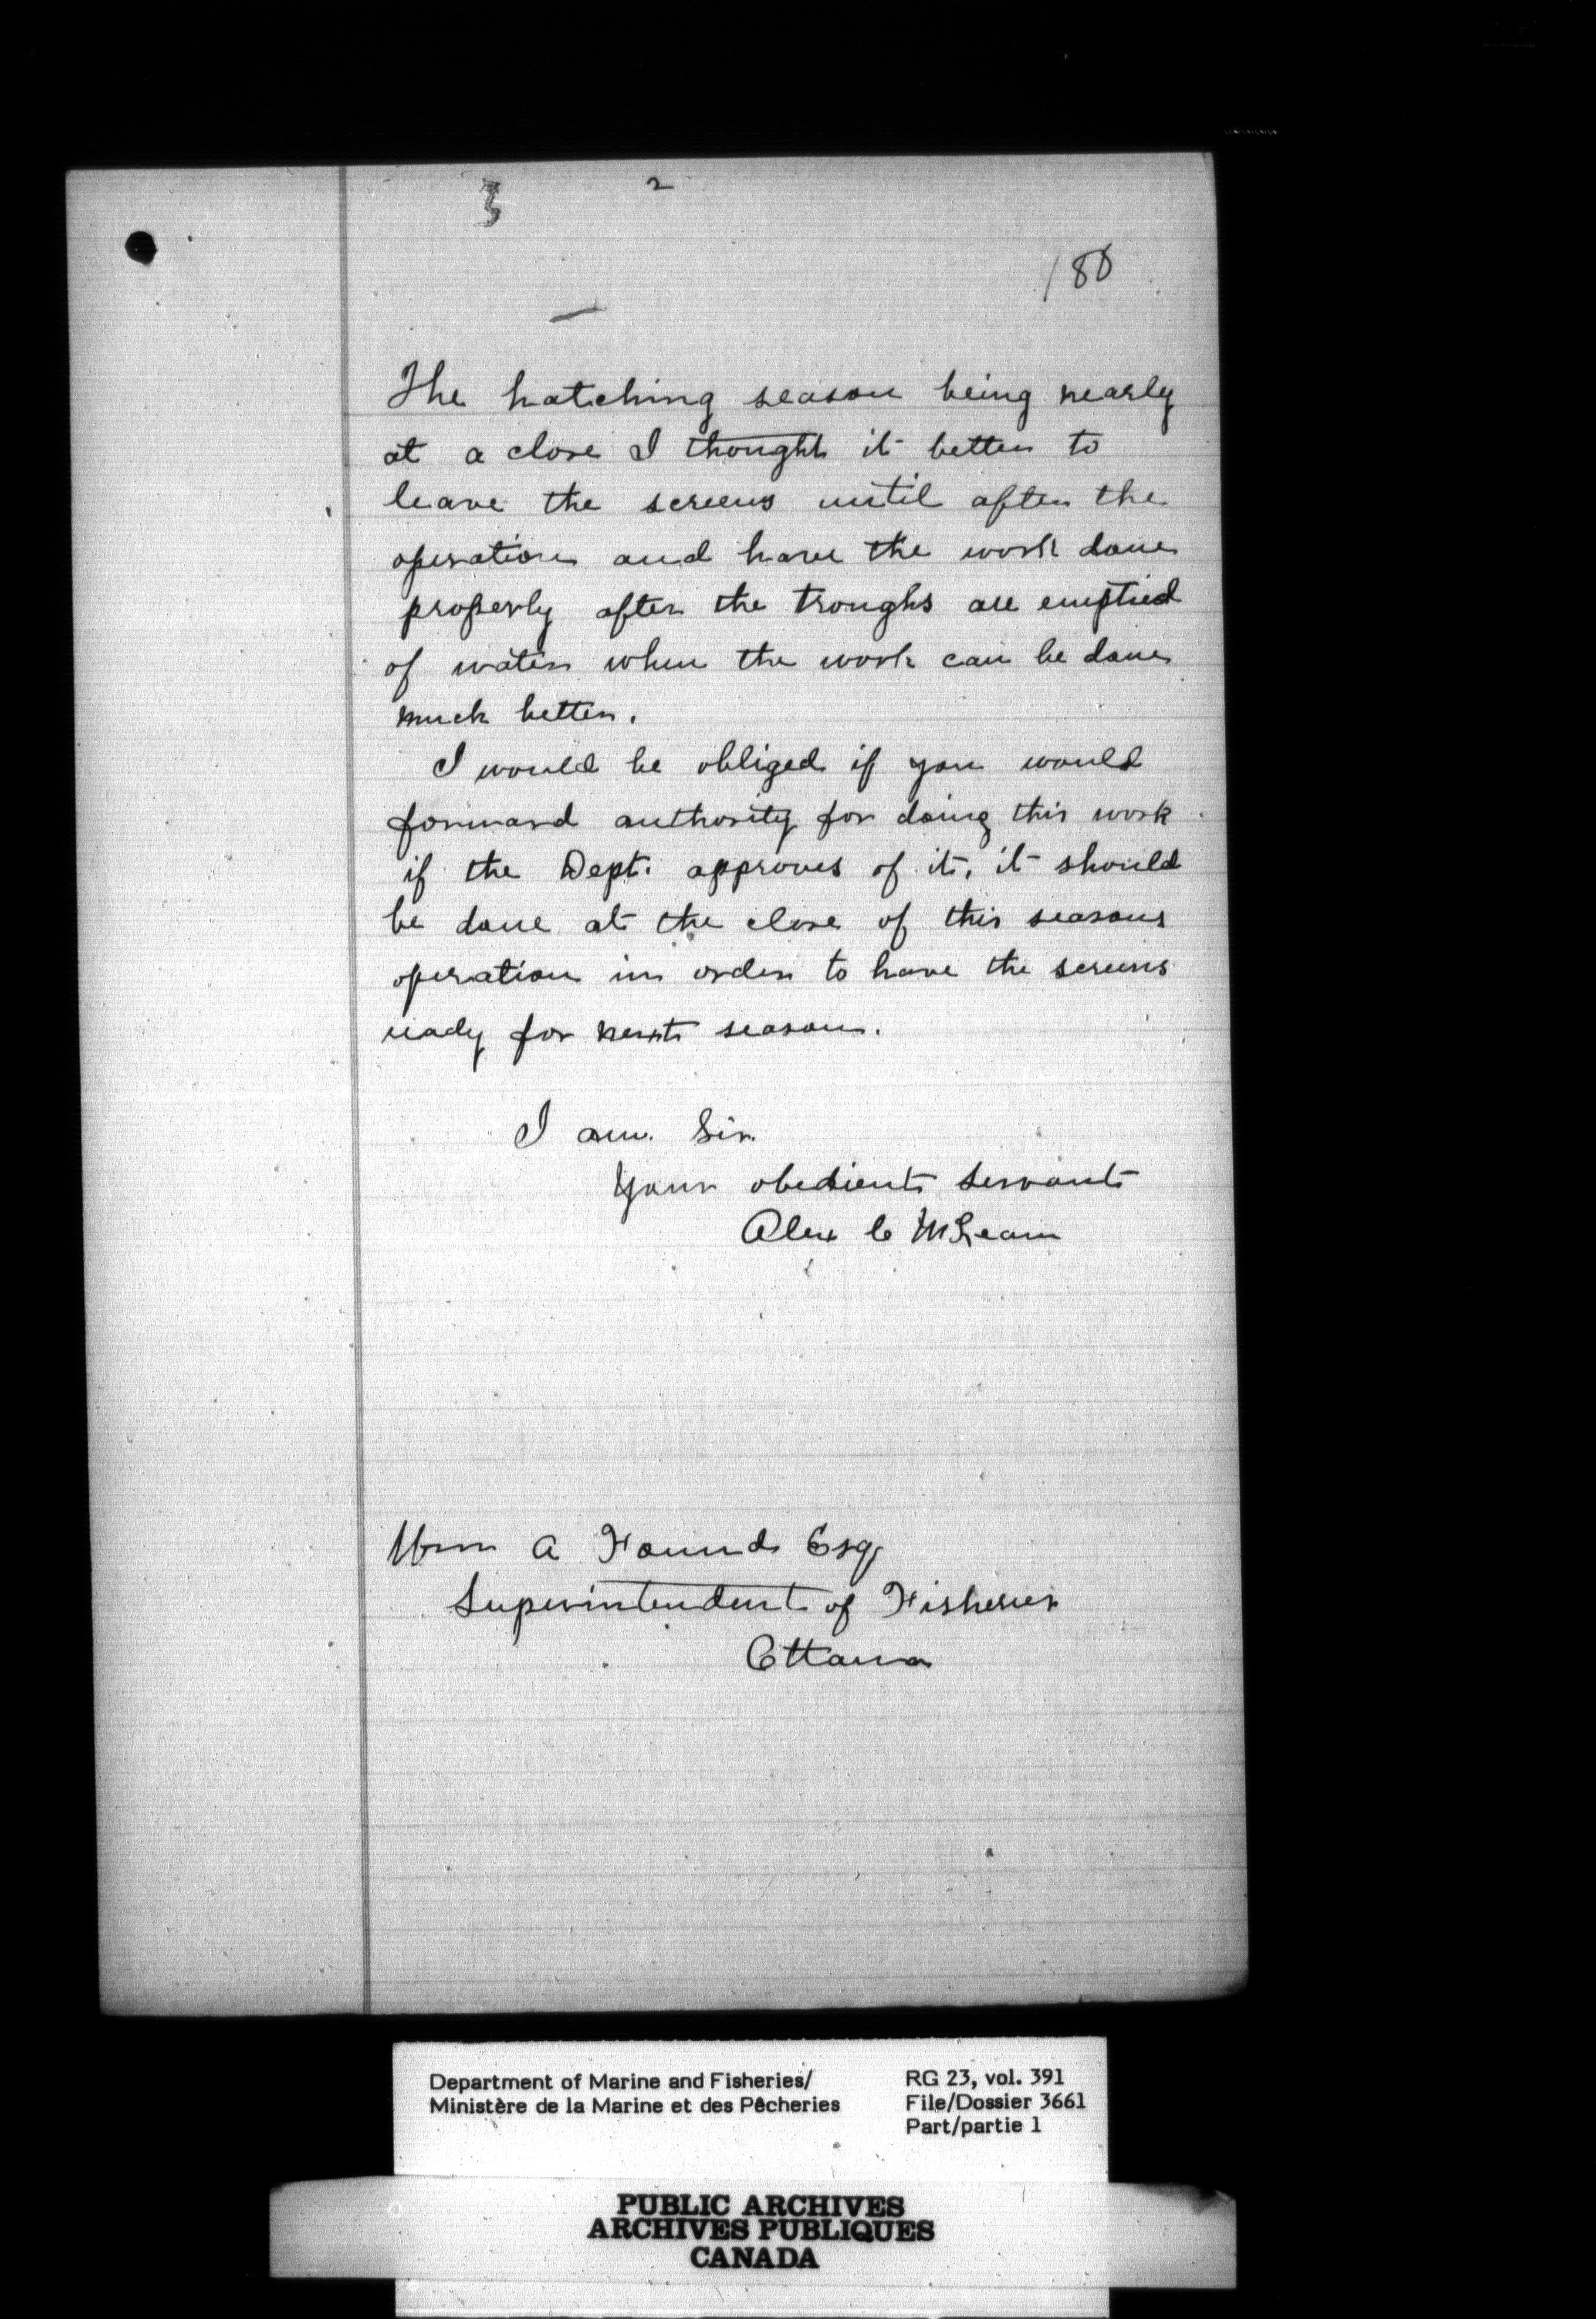 3 2
180
The hatching season being nearly
at a close I thought it better to
leave the screens until after the
operation and have the work done
properly after the troughs are emptied
of water when the work can be done
much better.
I would be obliged if you would
forward authority for doing this work
if the Dept. approves of it, it should
be done at the close of this seasons
operation in order to have the screens
ready for next season.
I am. Sir.
Your obedient servant
Alex C McLean
Wm A Found Esq
Superintendent of Fisheries
Ottawa
Department of Marine and Fisheries/ RG 23, vol. 391
Ministère de la Marine et des Pêcheries File/Dossier 3661
Part/partie 1
PUBLIC ARCHIVES
ARCHIVES PUBLIQUES
CANADA